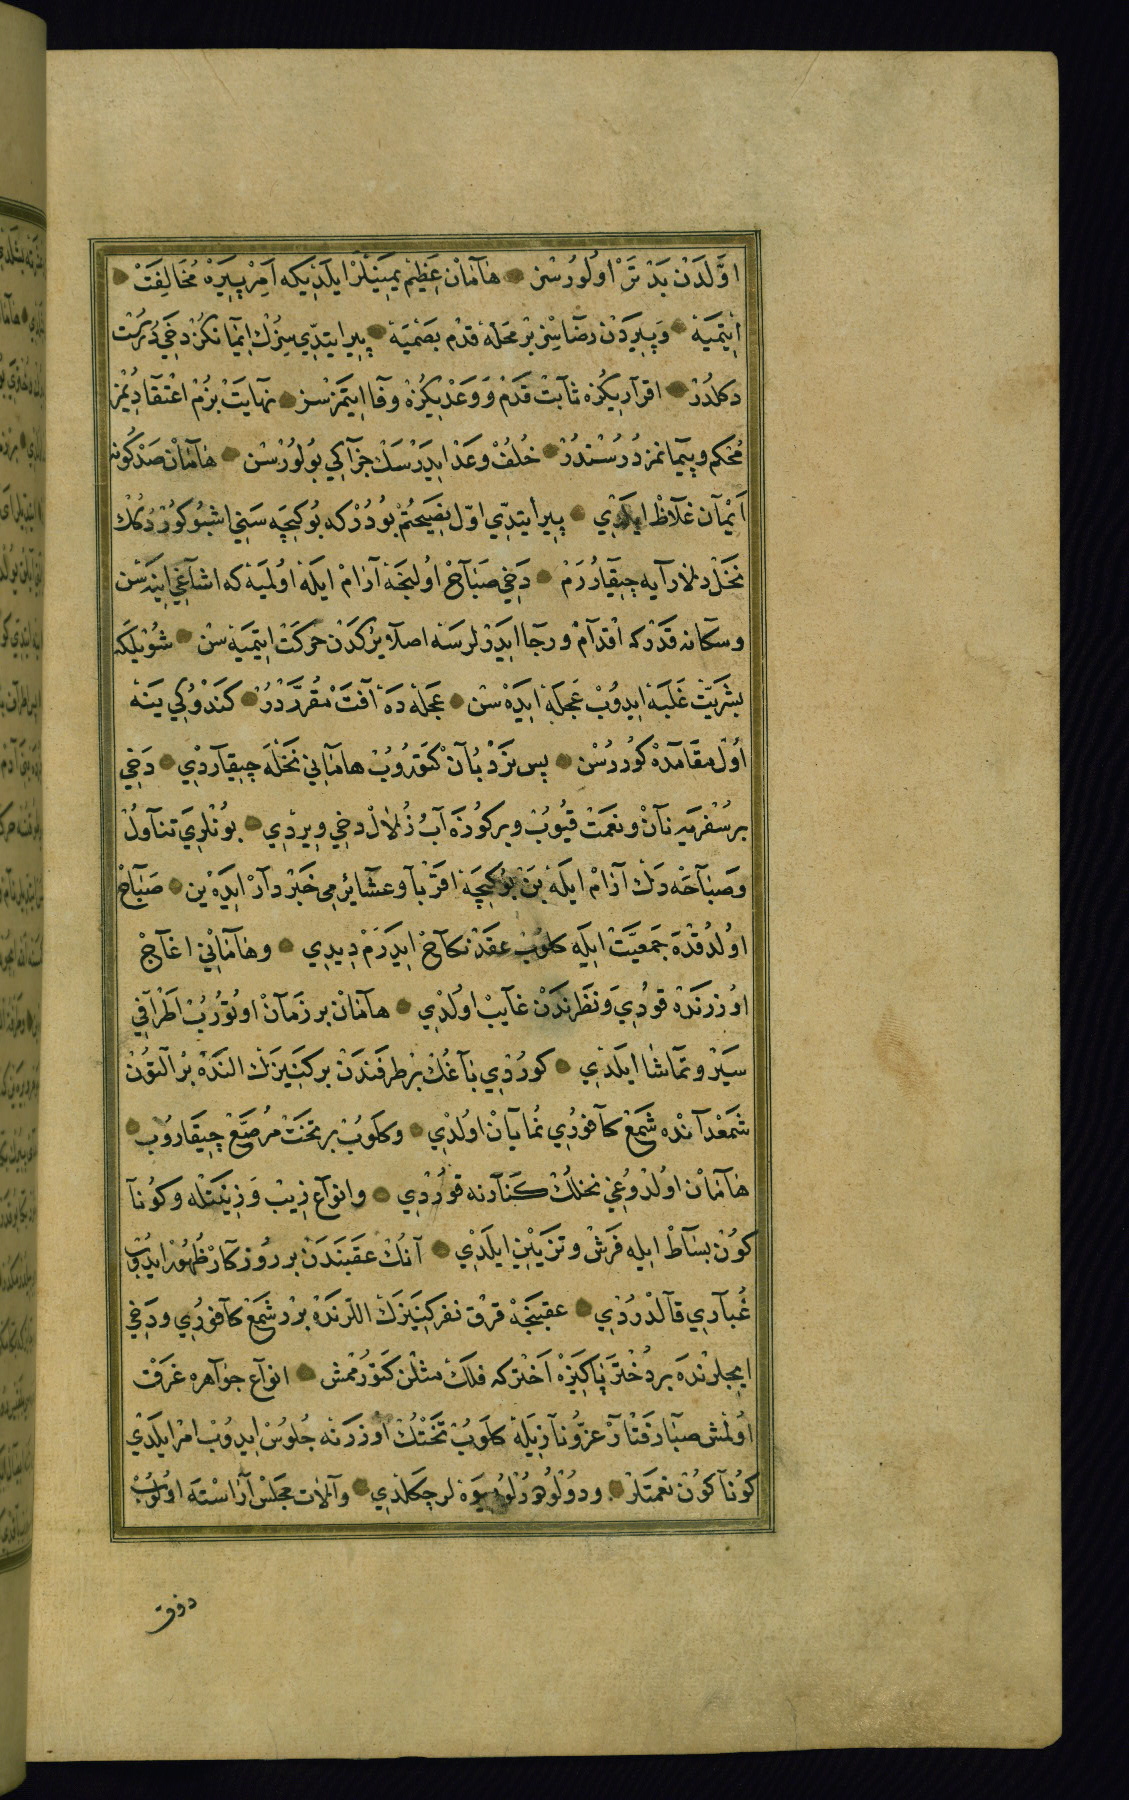 اوَّلَدَنْ بَدْتَرْ اوُلوُرسْنِ ۞ هٰامٰانْ عَظٖيمْ يَمِينْلَرْ ايلَدِيكه اَمِرْ پٖيرَهْ مُخَالِفَتْ ۞
اٖيتْمَيَهْ ۞ وَپٖيرَدْن رضٰاسِنِز بْر مَحَلَّهْ قَدَمْ بَصْمَيَهْ ۞ پٖير ايتدّي سِزُكْ ايمٰانكُز دخَي دُرُسْت
دكلْدُرْ ۞ اقرٰارِيكُزه ثٰابِتْ قَدَمْ وَ وَعَدْيكُزهْ وفٰا ايتَمَزْسِزْ ۞ نهٰايَتْ بزُمْ اعْتقٰادِيُمْز
مُحْكم وپيمٰانمز دُرُسْتدُرْ ۞ خُلفْ وعَدْ ايدَرْسَكْ جزٰاكي بوُلوُرْسْن ۞ هٰامٰانْ صَدْ كُونه
اَيْمٰانِ غلٰاظْ ايلَدْي ۞ پٖير ايتدّي اوّل نصَيحَتُمْ بوُدُرْكه بوُ كيجَه سَنٖي اشبوُ كوُرْدُكُكْ
نَخَلْ دلارٰايه چيقٰارُرَمْ ۞ دَخِي صَبٰاحْ اوُلنجَهْ آرٰامْ ايلَهْ اوُلميَهْ كه اشٰاغي اينَهسْن
وسكٰانه قَدَرْكه اقْدٰامْ ورجٰا ايدَرْلرسَه اصلٰا يركَدنْ حركَتْ ايتمَيَهْ سنْ ۞ شوُيلَكه
بشَرّيتْ غَلَبَه ايدوُبْ عَجَلَهْ ايدَهْ سْن ۞ عَجَلَهْ دَهْ آفَتْ مُقرَّرْدُرْ ۞ كَنْدوُكي يَنَهْ
اُوّل مقٰامدَهْ كوُرُرسْن ۞ پس نَرْدْبٰانْ كتوُرُوبْ هامٰاني نَخَلَهْ چيقٰاردْي ۞ دَخِي
برسُفرَيه نٰانْ ونعمَتْ قيُوبْ وبركوُزَه آبِ زُلٰالْ دخي ويردٖي ۞ بوُنْلرِي تنٰاوُلْ
وَصَبٰاحَه دَكْ آرٰامْ ايلَهْ بَنْ بوُ كيجَهْ اقرْبٰا وعشٰايرٖمي خَبَرْدٰارْ ايدَهْ يِن ۞ صَبٰاحْ
اوُلدُقْدَهْ جَمَعيَّتْ ايلَه كلوُبْ عقَدْ نكٰاحْ ايدَرَمْ دِيدي ۞ وهٰامٰانٖي اغٰاجْ
اوُزرندَهْ قوُدي وَنَظَرنْدَنْ غٰايبْ اوُلدْي ۞ هٰامٰانْ بر زمٰانْ اوُتوُرُبْ اطْرٰافي
سَيْر وتمٰاشٰا ايلَدْي ۞ كوُردْي بٰاغُكْ برْ طرفندَنْ بر كَنيزَكْ النْدَه برْ آلتوُنْ
شَمعْدٰانْده شَمعْ كٰافوُرِي نُمٰايٰانْ اوُلدْي ۞ وكلوُبْ بر تختْ مُرصَّعْ چيقٰاروُب ۞
هٰامٰانْ اوُلدُوغٖي نخلكْ كنَارنه قوُرْدي ۞ وانوٰاع زِيبْ وَ زِينَتْله وكوُنٰا
كوُنْ بسٰاطْ ايله فَرشْ وتزْيينْ ايلَدْي ۞ آنُكْ عقَبنَدَنْ بر روُزكٰارْ ظهُورْ ايدُوبْ
غُبٰارِي قٰالْدرُدْي ۞ عقبنجَهْ قرْقْ نفر كنيزَكْ اللرنَدَهْ برْر شمَعْ كٰافوُرِي ودَخِي
ايچلرْندَه بر دُخْتَر پٰاكيزَهْ اَخْترَكه فلَكْ مثلْن كتوُرممْش ۞ انوٰاع جوٰاهره غَرقْ
اوُلمْش صبٰا رفتٰارْ عزّونٰازِيلَه كلوُبْ تَختُكْ اوُزرَنَه جُلوُسْ ايدوُبْ امْر ايلَدْي
كوُنٰا كوُنْ نعمَتلَرْ ۞ ودوُرْلوُ دُرْلوُ ميوَه لر چكلدْي ۞ وآلٰات مَجلْس آرٰاسْتَه اوُلوُبْ
دوق